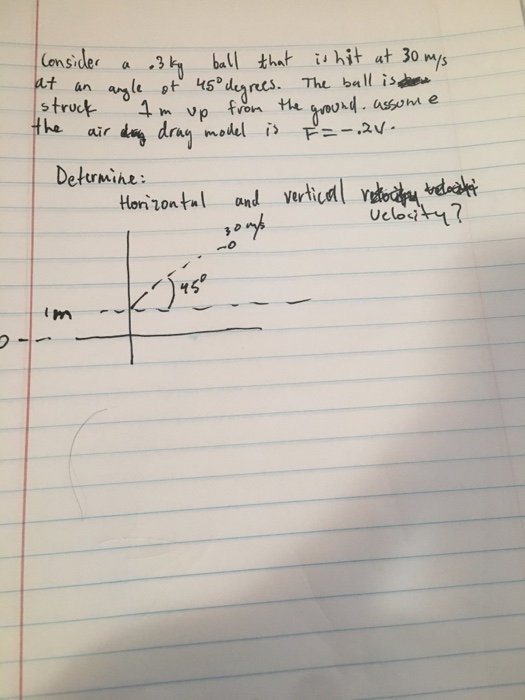 Consider a .3kg ball that is hit at 30 m/s
at an angle of 45° degrees. The ball is
struck 1m up from the ground. assume
the air drag model is F=-.2v.
Determine:
Horizontal and vertical
velocity?
30 m/s
45°
1m
0